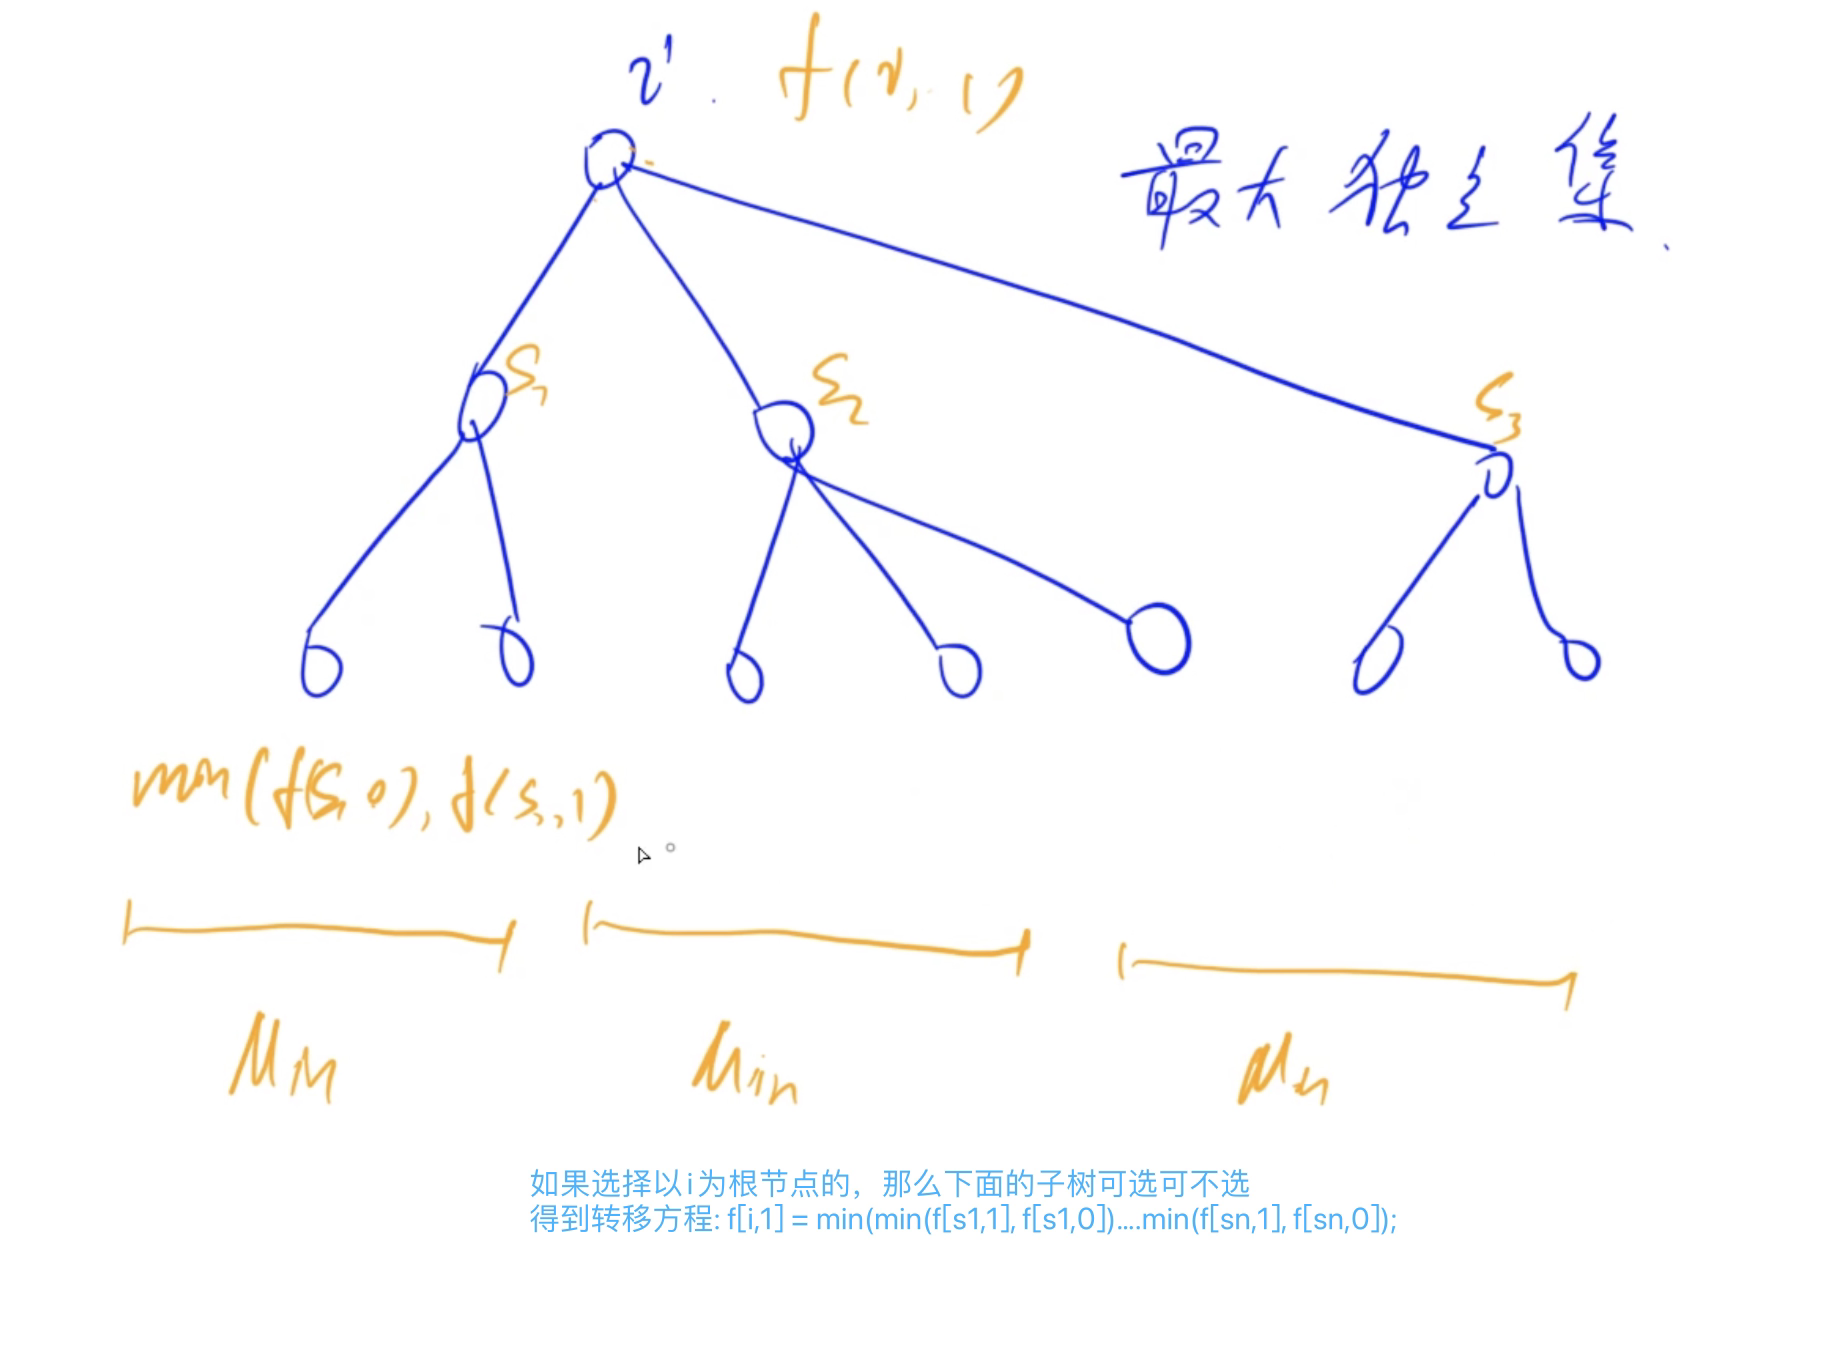 i . f(i, 1)
最大独立集.
S1
S2
S3
min(f(S1,0), f(S1,1)
Min
Min
Min
如果选择以i为根节点的，那么下面的子树可选可不选
得到转移方程: f[i,1] = min(min(f[s1,1], f[s1,0])....min(f[sn,1], f[sn,0]);